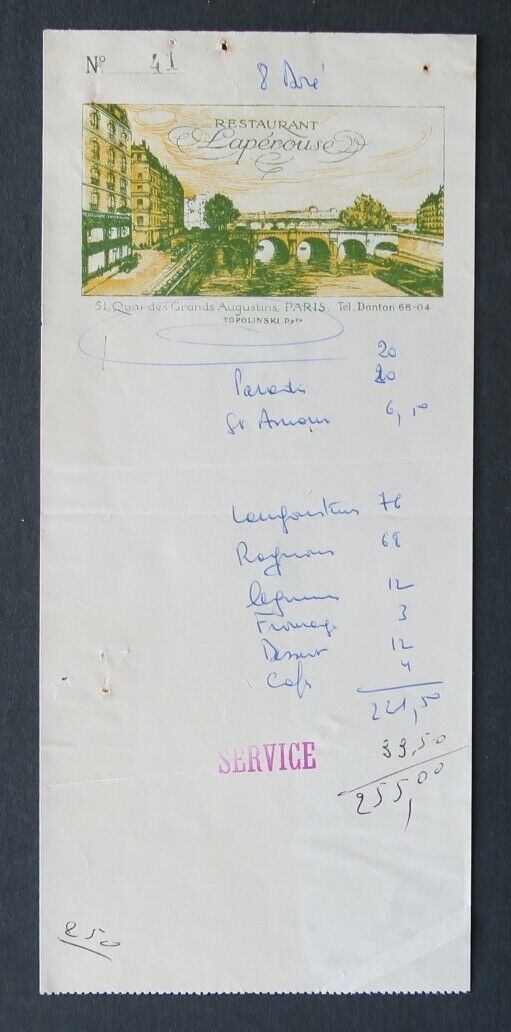 N° 41
RESTAURANT
Lapérouse
51, Quai des Grands Augustins, PARIS. Tel. Danton 68-04
TOPOLINSKI. Dre
20
20
St Amour 6,50
Langoustines 76
Rognons 68
légumes 12
Fromage 3
Dessert 12
Café 4
221,50
SERVICE 33,50
255,00
250